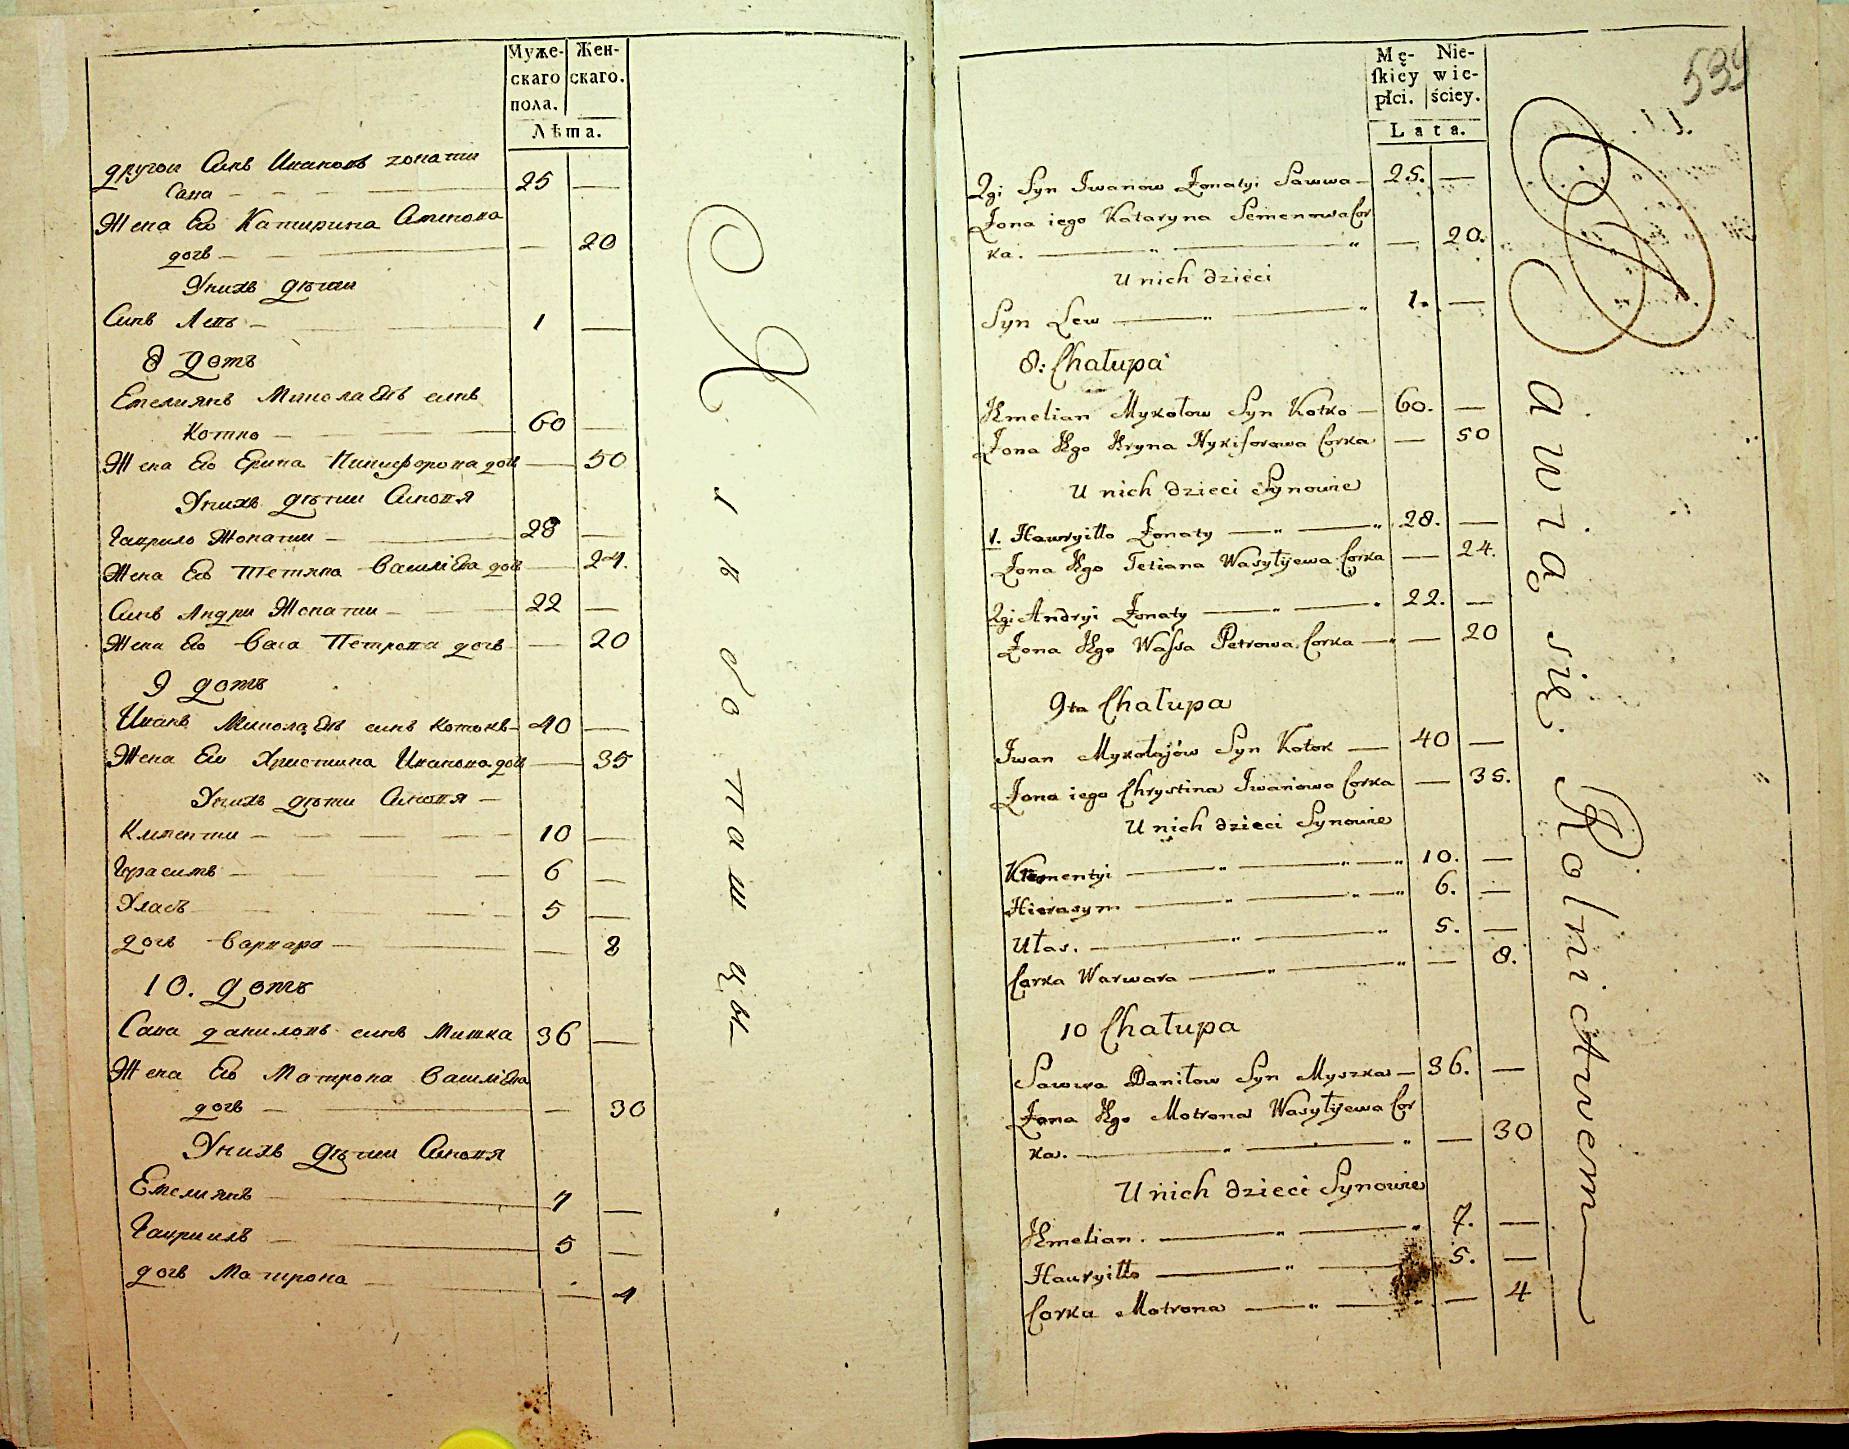 Муже- Жен-
скаго скаго.
пола.
Лѣта.
другои Синъ Ивановъ жонатии
Сава — 25 —
Жена Его Катирина Семенова
дочъ — — 20
Унихъ дѣтии
Синъ Левъ — 1 —
8 домъ
Емелиянъ Миколаевъ синъ
Котко — 60 —
Жена Его Ерина Никифорова доч — 50
Унихъ дѣтии Синовя
Гаврило Жонатии — 28 —
Жена Его Тетяна Васил Ева доч — 24.
Синъ Андри Жонатии — 22 —
Жена Его Васа Петрова дочъ — 20
9 домъ
Иванъ Миколаевъ синъ Котокъ — 40 —
Жена Его Христина Иванова доч — 35
Унихъ дѣти Синовя —
Климентии — 10 —
Герасимъ — 6 —
Уласъ — 5 —
дочъ Варвара — — 8
10. домъ
Сава даниловъ синъ Мишка 36 —
Жена Его Матрона Васил Ева
дочъ — — 30
Унихъ Дѣтии Синовя
Емелиянъ — 7 —
Гавриилъ — 5 —
дочъ Матрона — — 4
Хлѣбопашцы
539
Mę- Nie-
ſkiey wie-
płci. ściey.
Lata.
2gi Syn Iwanow Żonatyi Sawwa — 25. —
Żona iego Kataryna Semenowa Cor
ka. — — 20.
U nich dzieci
Syn Lew — 1. —
8: Chałupa
Jemelian Mykołow Syn Kotko — 60. —
Żona Jego Jeryna Nykiforowa Corka — 50
U nich dzieci Synowie
1. Hawryiłło Żonaty — 28. —
Żona Jego Tetiana Wasyłijewa Corka — 24.
2gi Andryi Żonaty — 22. —
Żona Jego Waſsa Petrowa Corka — — 20
9ta Chałupa
Iwan Mykołajów Syn Kotok — 40 —
Żona iego Chrystina Iwanowa Corka — 35.
U nich dzieci Synowie
Klementyi — 10. —
Hierasym — 6. —
Ułas. — 5. —
Corka Warwara — — 8.
10 Chałupa
Sawwa Daniłow Syn Myszka — 36. —
Żona Jego Motrona Wasyłijewa Cor
ka. — — 30
U nich dzieci Synowie
Jemelian. — 7. —
Hawryiłło — 5. —
Corka Motrona — — 4
Bawią się Rolnictwem